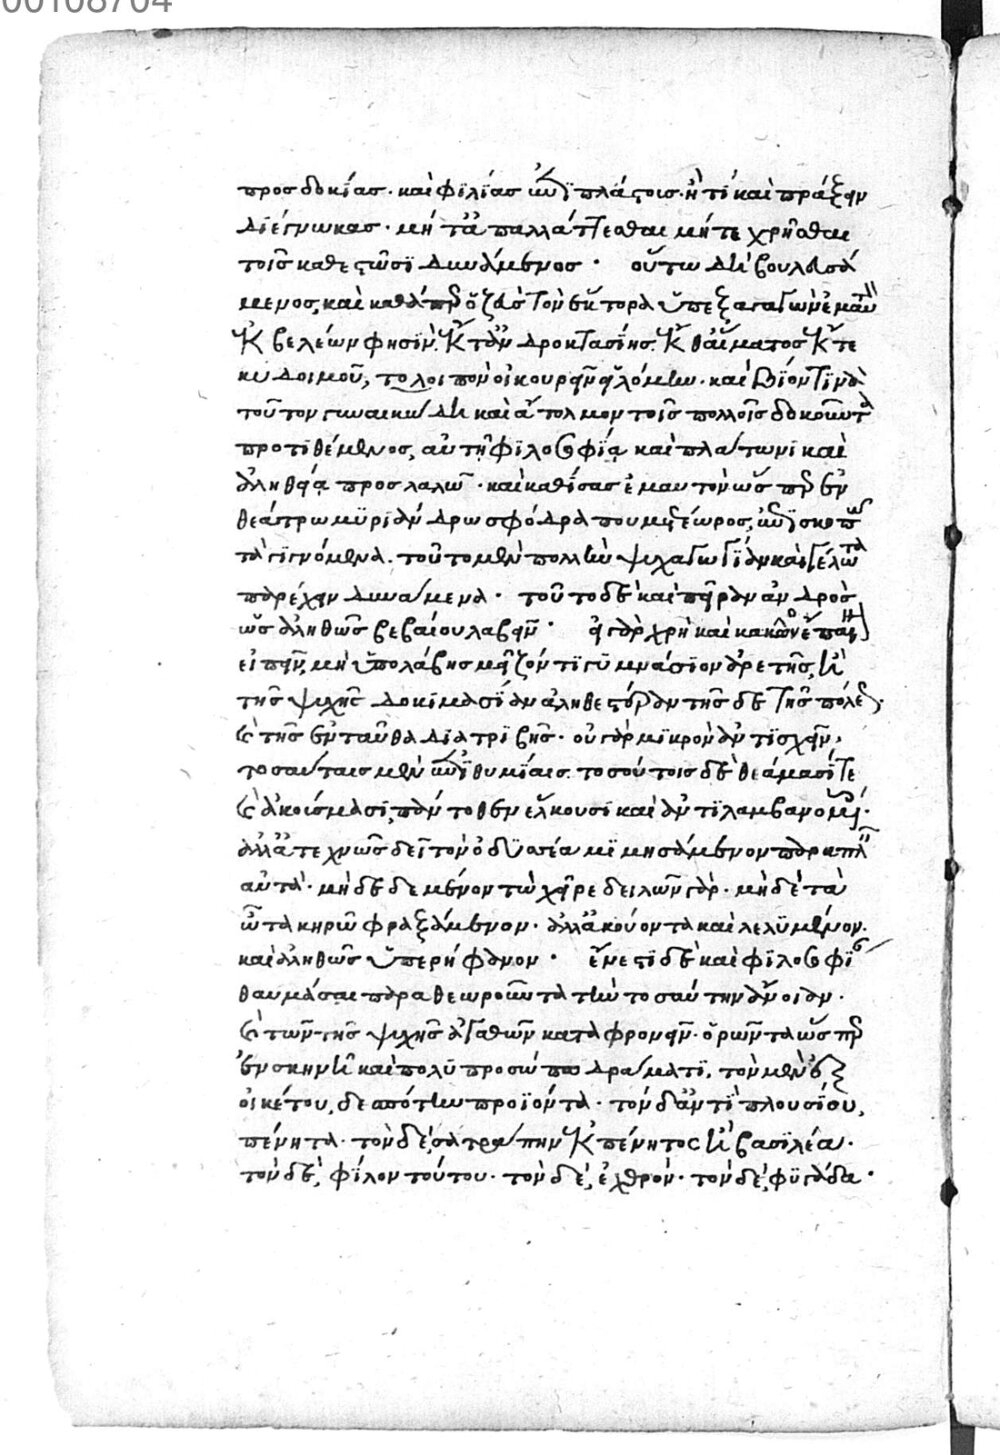 00108704
προσδοκίας. καὶ φιλίας ἐπιπλάστοις. ἢ τί καὶ πράξειν
διέγνωκας. μήτ' ἀπαλλάττεσθαι μήτε χρῆσθαι
τοῖς καθεστῶσι δυνάμενος. οὕτω δὴ βουλευσά
μενος, καὶ καθάπερ ὁ ζεὺς τὸν ἕκτορα ὑπεξαγαγὼν ἐμαυτὸν
ἐκ βελέων φησίν. ἔκ τ' ἀνδροκτασίης. ἔκ θ' αἵματος ἔκ τε
κυδοιμοῦ, τολοιπὸν οἰκουρεῖν εἱλόμην. καὶ βίον τινὰ
τοῦτον γυναικώδη καὶ ἄτολμον τοῖς πολλοῖς δοκοῦντα
προτιθέμενος, αὐτῇ φιλοσοφίᾳ καὶ πλάτωνι καὶ
ἀληθείᾳ προσλαλῶ. καὶ καθίσας ἐμαυτὸν ὥσπερ ἐν
θεάτρω μυριάνδρω σφόδρα που μετέωρος, ἐπισκοπῶ
τὰ γιγνόμενα. τοῦτο μὲν πολλὴν ψυχαγωγίαν καὶ γέλωτα
παρέχειν δυνάμενα. τοῦτο δὲ καὶ πεῖραν ἀνδρὸς
ὡς ἀληθῶς βεβαίου λαβεῖν. εἰ γὰρ χρὴ καὶ κακῶν ἔπαινον
εἰπεῖν, μὴ ὑπολάβῃς μεῖζόν τι γυμνάσιον ἀρετῆς, ἢ
τῆς ψυχῆς δοκιμασίαν ἀληθεστέραν τῆσδε τῆς πόλεως.
καὶ τῆς ἐνταῦθα διατριβῆς. οὐ γὰρ μικρὸν ἀντισχεῖν,
τοσαύταις μὲν ἐπιθυμίαις. τοσούτοις δὲ θεάμασί τε
καὶ ἀκούσμασι, πάντοθεν ἕλκουσι καὶ ἀντιλαμβανομένοις.
ἀλλ' ἀτεχνῶς δεῖ τὸν ὀδυσσέα μιμησάμενον παραπλεῖν
αὐτά. μὴ δεδεμένον τὼ χεῖρε δειλῶν γάρ. μηδὲ τὰ
ὦτα κηρῶ φραξάμενον. ἀλλ' ἀκούοντα καὶ λελυμένον.
καὶ ἀληθῶς ὑπερήφανον. ἔνεστι δὲ καὶ φιλοσοφίαν
θαυμάσαι παραθεωροῦντα τὴν τοσαύτην ἄνοιαν.
καὶ τῶν τῆς ψυχῆς ἀγαθῶν καταφρονεῖν. ὁρῶντα ὥσπερ
ἐν σκηνῇ καὶ πολυπροσώπω δράματι. τὸν μὲν ἐξ
οἰκέτου, δεσπότην προϊόντα. τὸν δ' ἀντὶ πλουσίου,
πένητα. τὸν δέ, σατράπην ἐκ πένητος ἢ βασιλέα.
τὸν δὲ, φίλον τούτου. τὸν δέ, ἐχθρόν. τὸν δέ, φυγάδα.